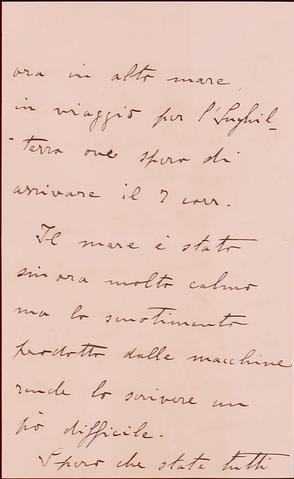 ora in alto mare,
in viaggio per l'Inghil-
-terra ove spero di
arrivare il 7 corr.
Il mare è stato
sin ora molto calmo
ma lo scuotimento
prodotto dalle macchine
rende lo scrivere un
pò difficile.
Spero che state tutti